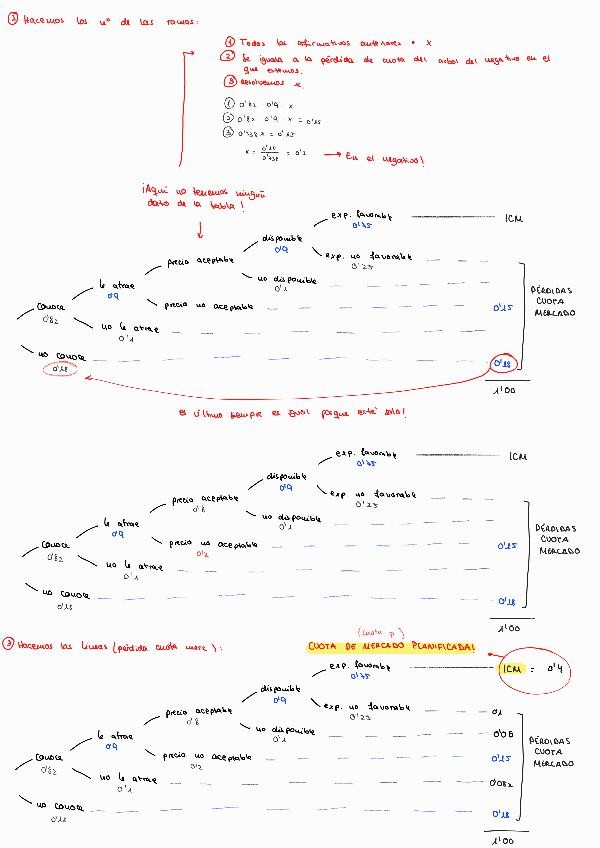 ② Hacemos los nº de las ramas:
① Todos los afirmativos anteriores · x
② Se iguala a la pérdida de cuota del arbol del negativo en el
que estemos.
③ Resolvemos x.
① 0'82 0'9 x
② 0'82 0'9 x = 0'15
③ 0'738 x = 0'15
x = 0'15 / 0'738 = 0'2 → En el negativo!
¡Aqui no tenemos ningún
dato de la tabla!
exp. favorable ICM
0'75
disponible
0'9
exp. no favorable
0'25
precio aceptable
no disponible
0'1
PÉRDIDAS
CUOTA
MERCADO
le atrae
0'9
precio no aceptable 0'15
conoce
0'82
no le atrae
0'1
no conoce 0'18
0'18
1'00
es último siempre es igual porque está solo!
exp. favorable ICM
0'75
disponible
0'9
exp. no favorable
0'25
precio aceptable
0'8
no disponible
0'1
PÉRDIDAS
CUOTA
MERCADO
le atrae
0'9
precio no aceptable 0'15
0'2
conoce
0'82
no le atrae
0'1
no conoce 0'18
0'18
1'00
③ Hacemos las lineas (pérdida cuota merc):
(cuota p)
CUOTA DE MERCADO PLANIFICADA!
exp. favorable ICM = 0'4
0'75
disponible
0'9
exp. no favorable 0'1
0'25
precio aceptable
0'8
no disponible 0'06
0'1
PÉRDIDAS
CUOTA
MERCADO
le atrae
0'9
precio no aceptable 0'15
0'2
conoce
0'82
no le atrae 0'082
0'1
no conoce 0'18
0'18
1'00